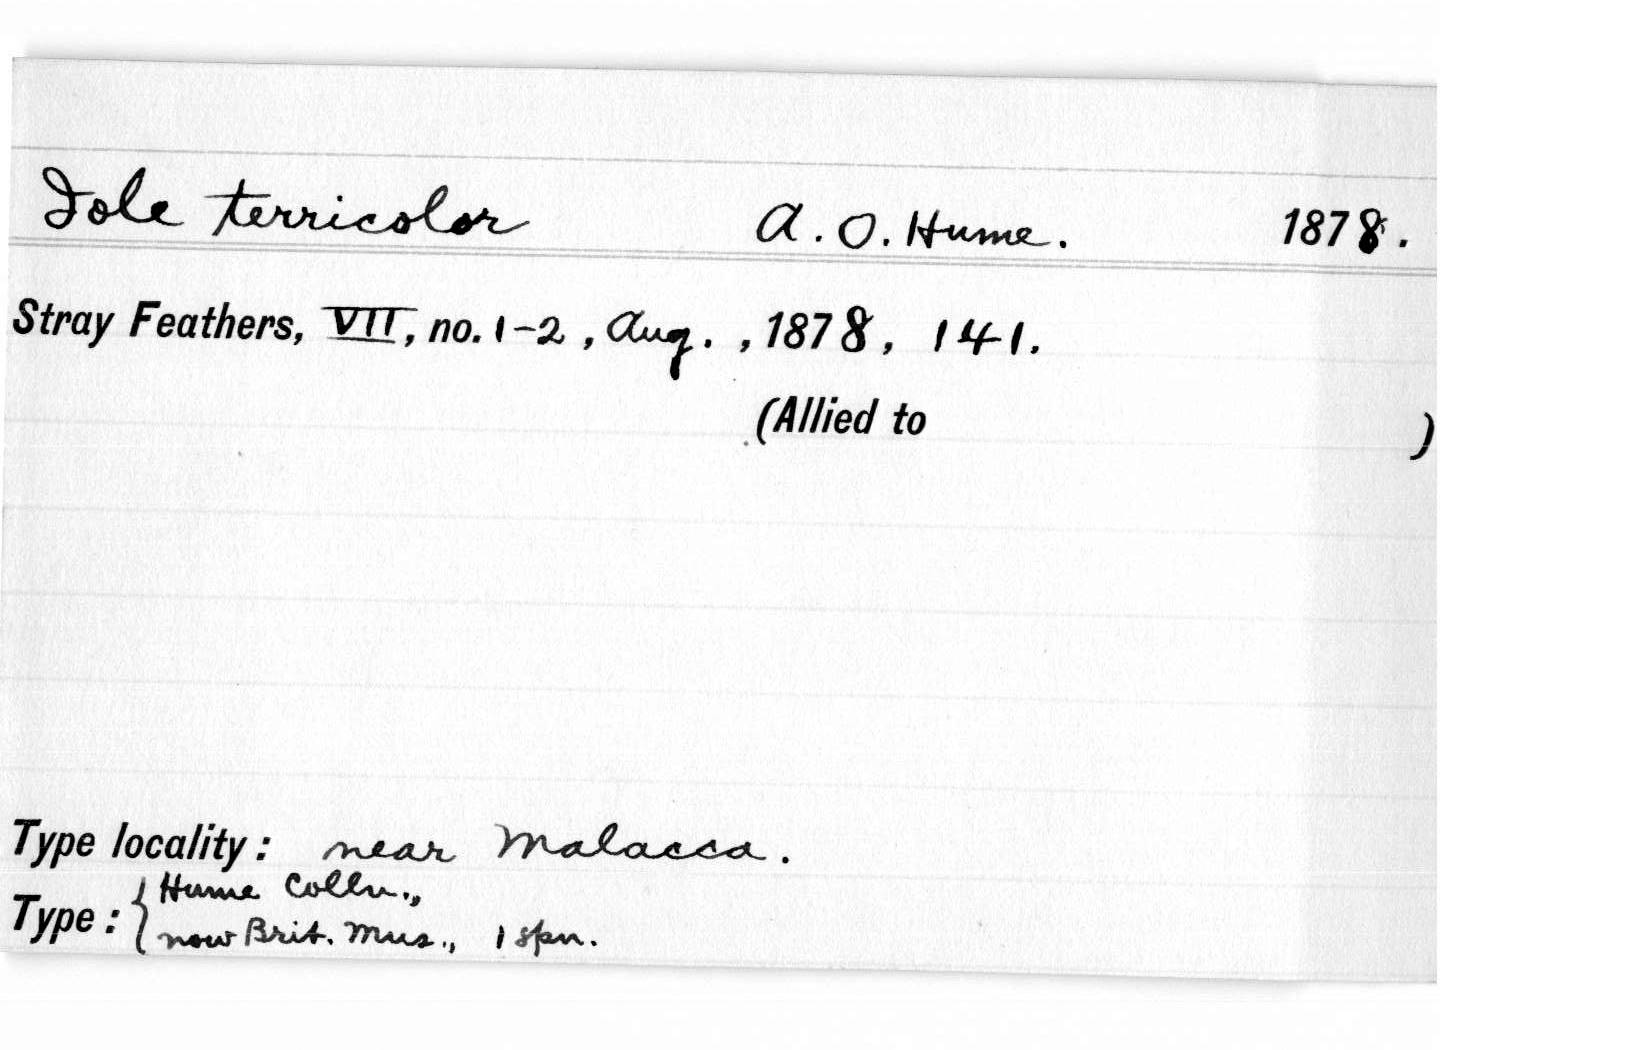 Iole terricolor A. O. Hume. 1878.
Stray Feathers, VII, no. 1-2, Aug., 1878, 141.
(Allied to )
Type locality: near Malacca.
Type: { Hume Colln.,
now Brit. Mus., 1 spn.